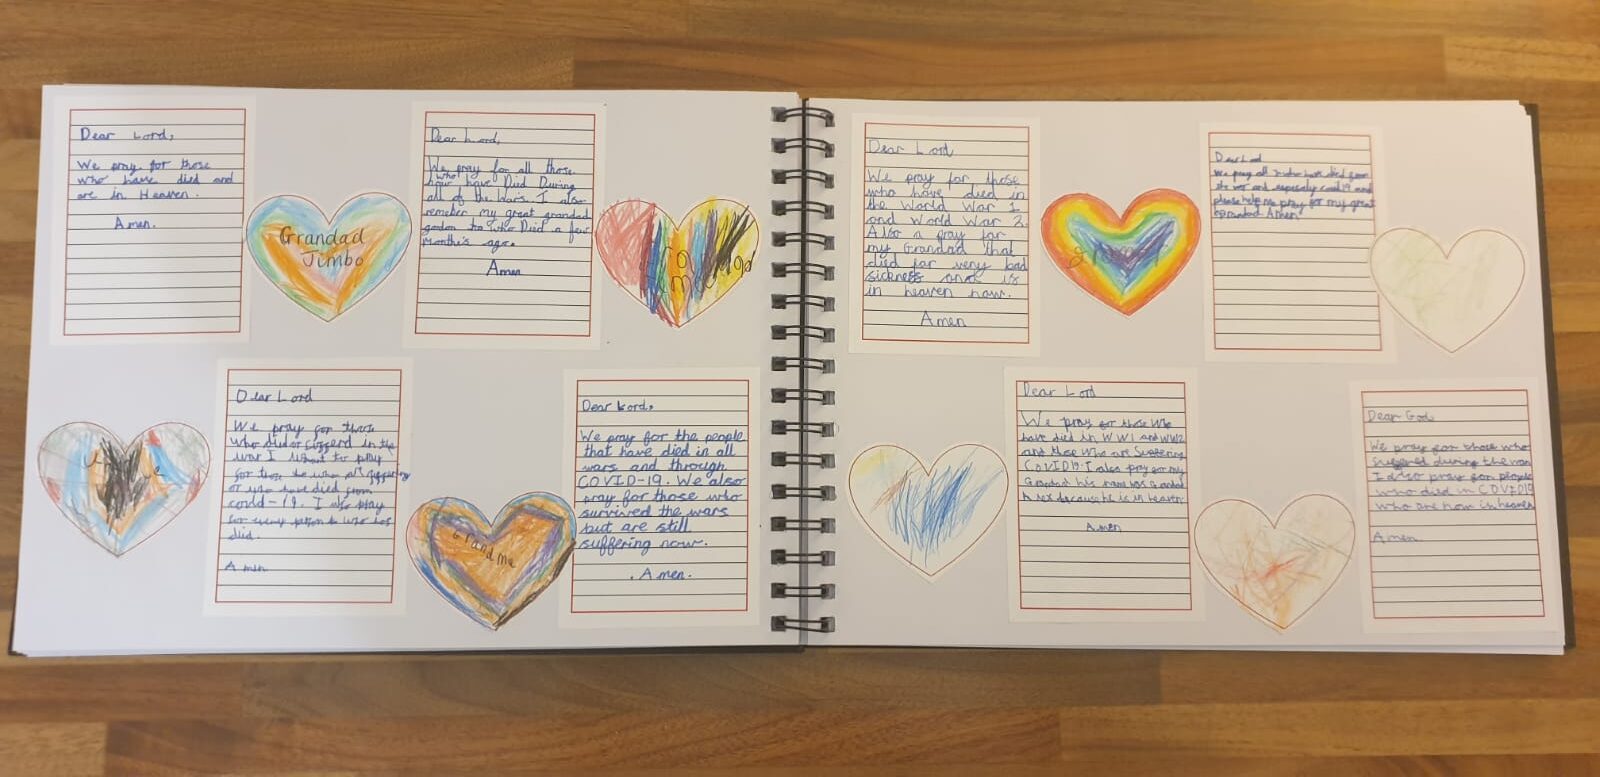 Dear Lord,
We pray for those
who have died and
are in Heaven.
Amen.
Grandad
Jimbo
Dear Lord,
We pray for all those
who have Died During
all of the wars. I also
remember my great grandad
gordon to who Died a few
Months ago.
Amen
Dear Lord
We pray for those
who died or suffered in the
war I want to pray
for
or who have died from
covid-19. I also pray
for every person who has
died.
Amen
Grandma
Dear Lord,
We pray for the people
that have died in all
wars and through
COVID-19. We also
pray for those who
survived the wars
but are still
suffering now.
Amen.
Dear Lord
We pray for those
who have died in
the World War 1
and World War 2.
Also a pray for
my Grandad that
died for very bad
sickness and is
in heaven now.
Amen
Dear Lord
We pray all who have died from
the war and especially covid19 and
please help me pray for my great
grandad Amen
Dear Lord
We pray for those who
have died in WW1 and WW2
and those who are Suffering
COVID19. I also pray for my
Grandad his name was Grandad
because he is in heaven
Amen
Dear God
We pray for those who
suffered during the war
I also pray for people
who died in COVID19
who are now in heaven
Amen